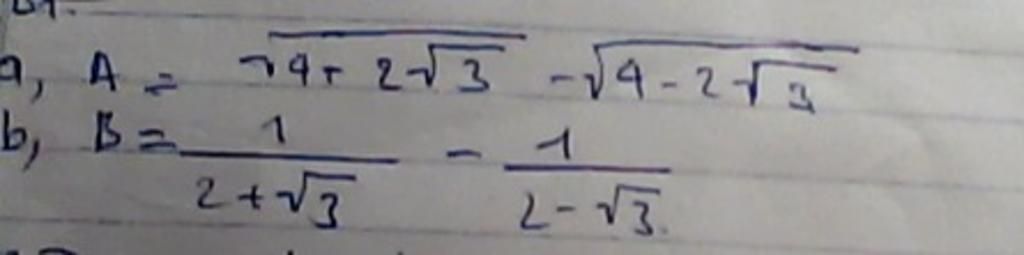 a, A = √(4 + 2√3) - √(4 - 2√3)
b, B = 1/(2 + √3) - 1/(2 - √3)